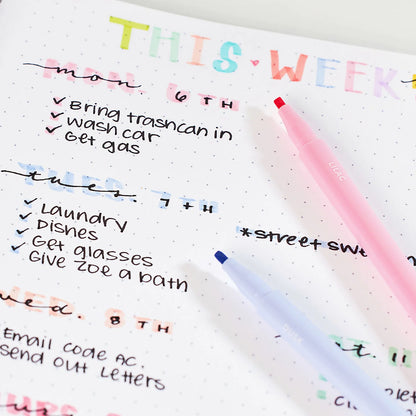 THIS WEEK
mon. 6TH
Bring trashcan in
wash car
Get gas
tues. 7TH
Laundry
Dishes
Get glasses
Give Zoe a bath
*street sw
wed. 8TH
Email Code AC.
send out Letters
11
LILAC